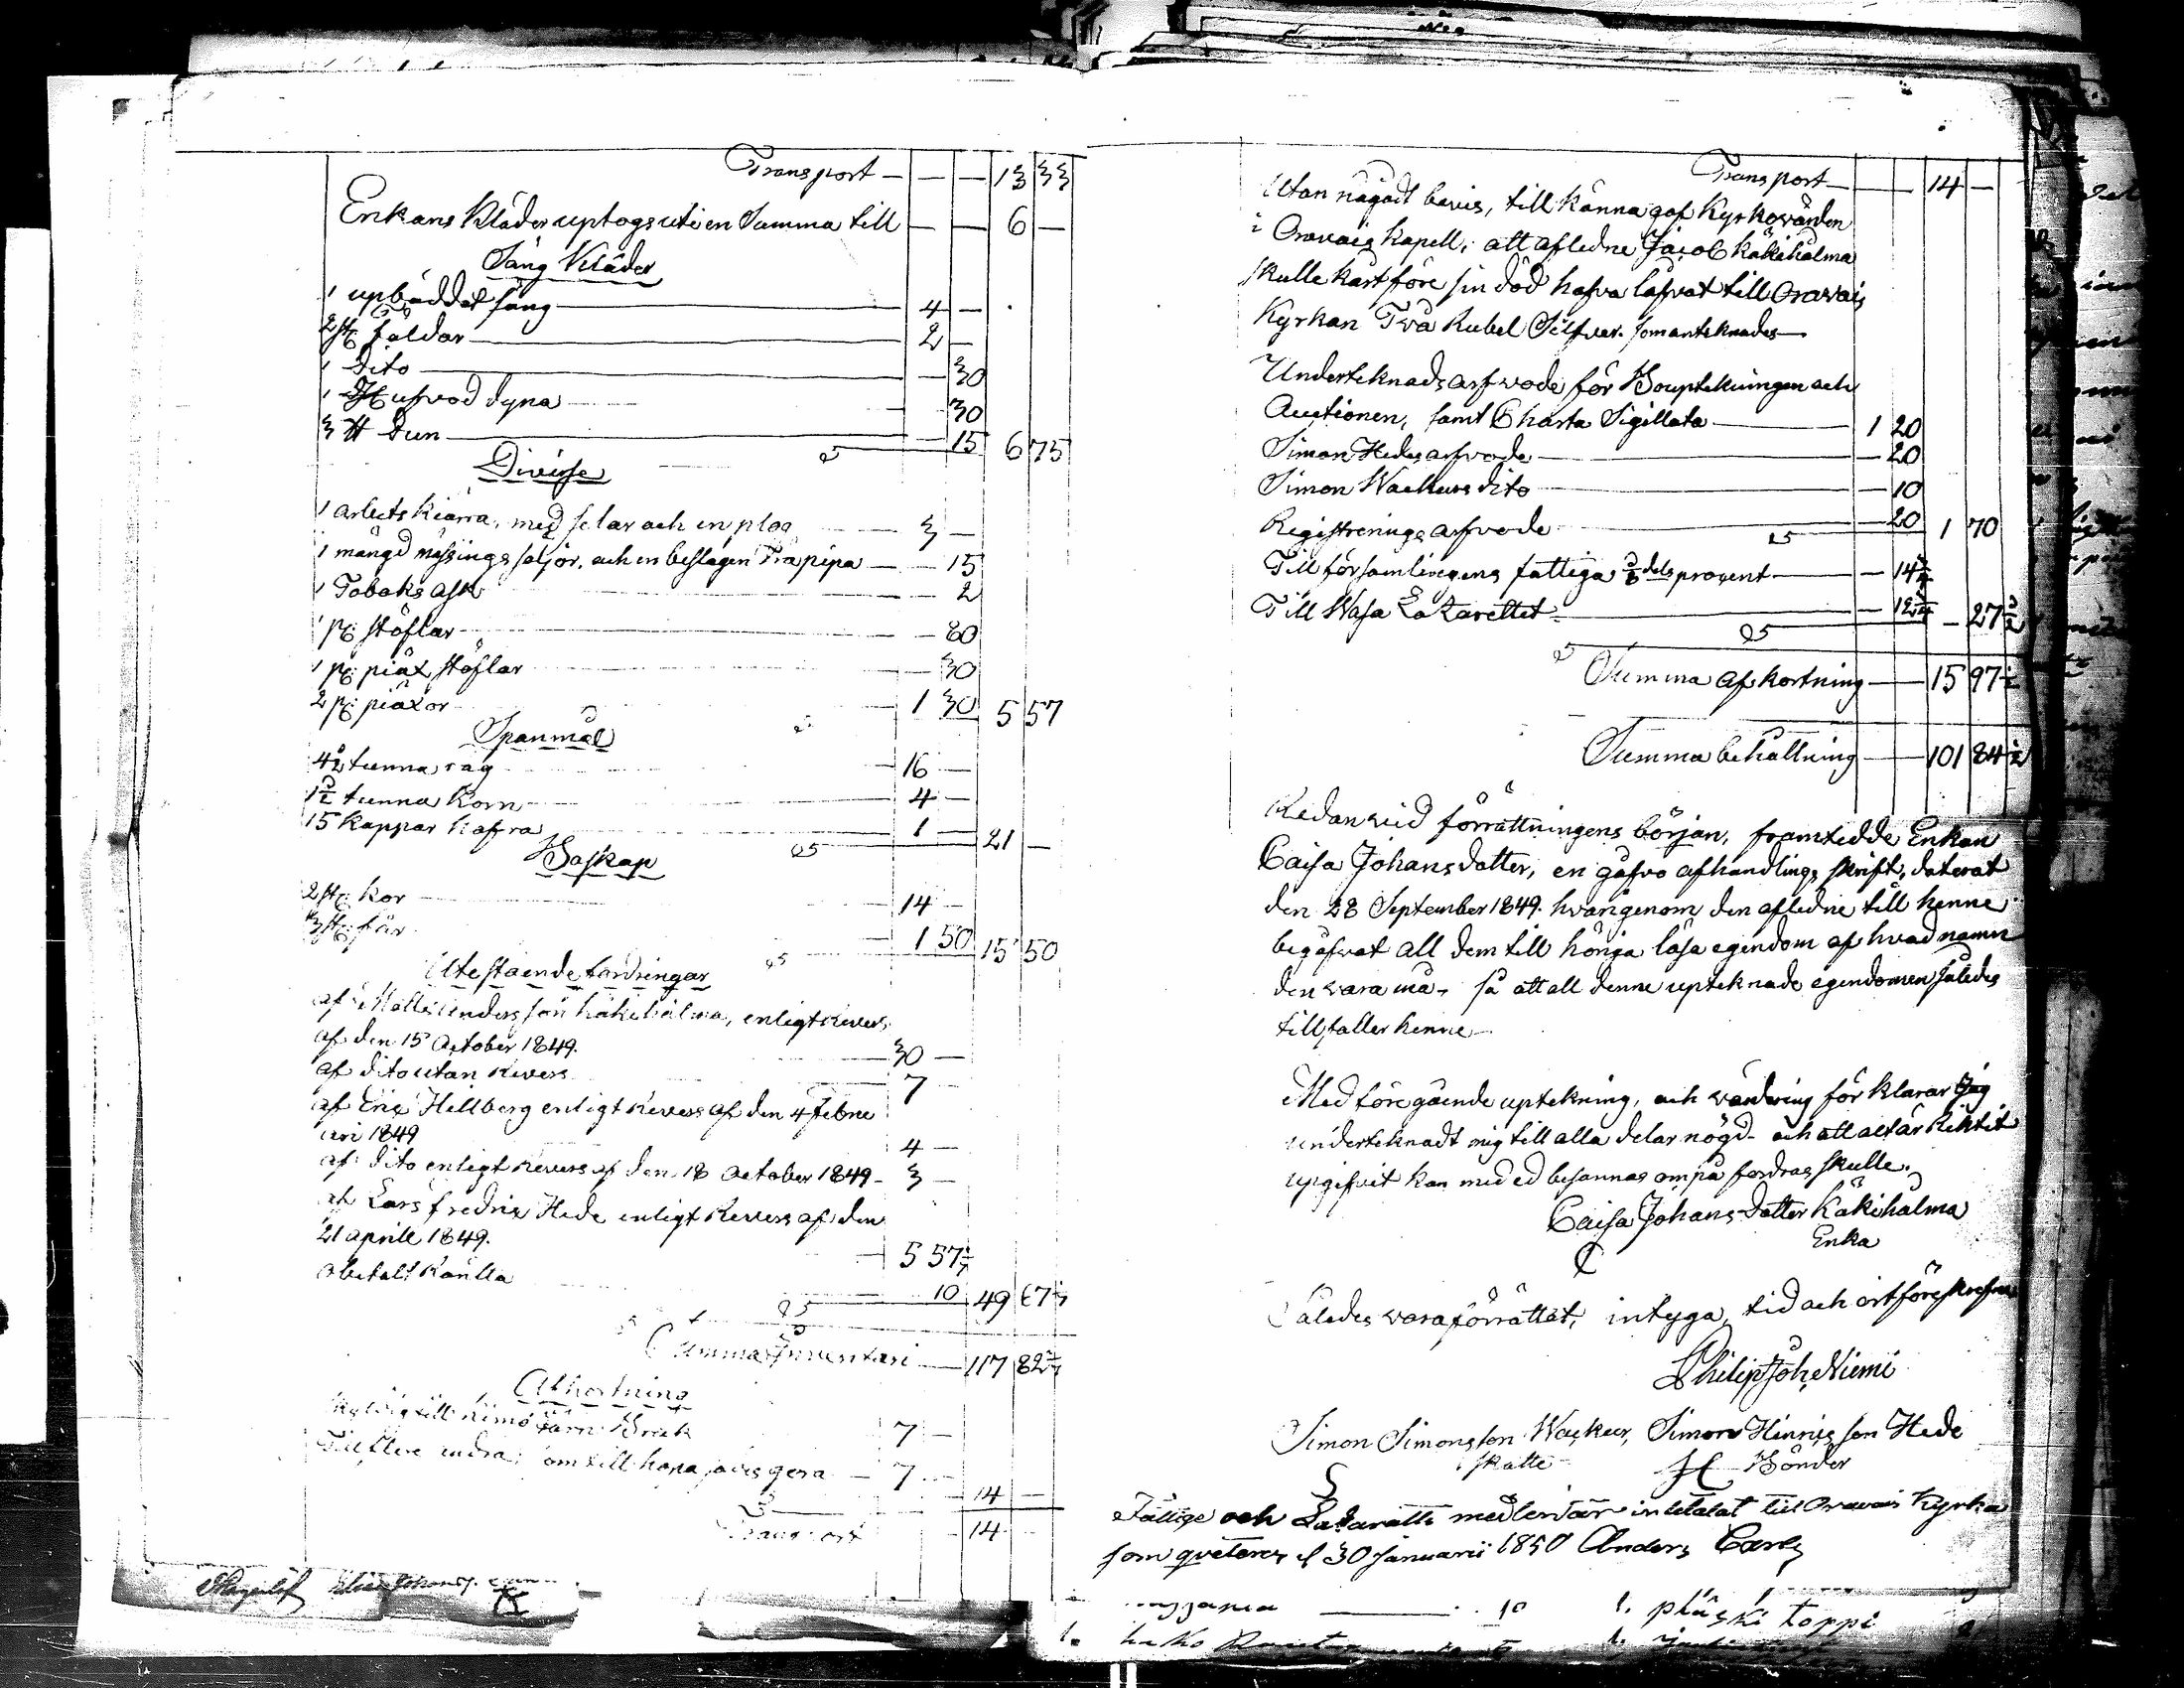 Transport — — — 13 33
Enkans Kläder uptogs uti en Summa till — — 6 —
Säng Kläder
1 upbäddat säng — 4 —
2 st: fäldar — 2 —
1 Dito — 30
1 Hufvod dyna — 30
3 ℔ Dun — 15 6 75
Diverse
1 arbets kiärra, med selar och en plog — 3 —
1 mängd mässings söljor, och en beslagen Träpipa — 15
1 Tobaks ask — 2
1 p: stöflar — 80
1 p: piäx stöflar — 30
2 p: piäxor 1 30 5 57
Spanmål
4½ tunna råg — 16 —
1½ tunna Korn — 4 —
15 Kappar hafra 1 — 21 —
Boskap
2 st: kor — 14 —
3 st: får 1 50 15 50
Utestående fordringar
af Matts Andersson Käkihalma, enligt Revers
af den 15 October 1849. — 30 —
af dito utan Revers 7
af Eric Hellberg enligt Revers af den 4 Febru
ari 1849 4 —
af dito enligt Revers af den 18 October 1849 — 3 —
af Lars fredric Hede enligt Revers af den
21 aprill 1849. — 5 57½
obetalt Ränta 10 49 67½
Summa Inventari — 117 82
Afkortning
Skyldig till Kimo Järn Bruk 7 —
Till flere andra, 7 —
14 —
Transport 14
Transport — — 14 —
Utan någodt bevis, till känna gaf Kyrkovärden
i Oravais Kapell, att afledne Jacob Käkihalma
skulle kårt före sin död hafva låfvat till Oravais
Kyrkan Två Rubel Silfver. som anteknades —
Underteknads arfvode för Bouptekningen och
Auctionen, samt Charta Sigillata — 1 20
Simon Hedes arfvode — 20
Simon Wackurs dito — 10
Registrerings arfvode — 20 1 70
Till församlingens fattiga dels procent — 14¾
Till Wasa Lazarettet — 12¾ — 27½
Summa afkortning — 15 97½
Summa behållning — 101 84½
Redan vid förrättningens början, framtedde Enkan
Caisa Johansdotter, en gåfvo afhandlings skrift, daterat
den 28 September 1849. hvarigenom den afledne till henne
begåfvat all dem till höriga lösa egendom af hvad namn
den vara må, så att all denne upteknade egendomen således
tillfaller henne —
Med före gående uptekning, och värdering förklarar Jag
underteknadt mig till alla delar nögd — och att alt är Riktit
upgifvit kan med ed besannas om på fordras skulle.
Caisa Johans Dotter Käkihalma
Enka
Således vara förrättat, intyga, tid och ort föreskrefne
Philip Joh: Niemi
Simon Simonsson Wackur, Simon Hinrisson Hede
skatte Bönder
Fattige och Lazaretts medlen är inbetalat till Oravais Kyrka
som qvetteres d 30 Januarii 1850 Anders
10
1. pläski toppi